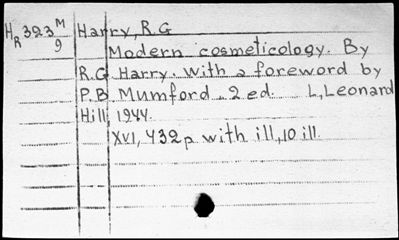 HR 323 M Harry, R.G
9
Modern cosmeticology. By
R.G Harry. With a foreword by
P.B Mumford. 2 ed. L, Leonard
Hill 1944.
XVI, 432 p with ill, 10 ill.